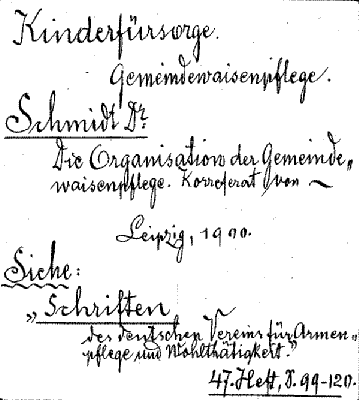 Kinderfürsorge.
Gemeindewaisenpflege.
Schmidt Dr.
Die Organisation der Gemeinde„
waisenpflege. Korreferat von ~
Leipzig, 1900.
Siehe:
„Schriften
des deutschen Vereins für Armen„
pflege und Wohlthätigkeit.“
47. Heft, S. 99-120.